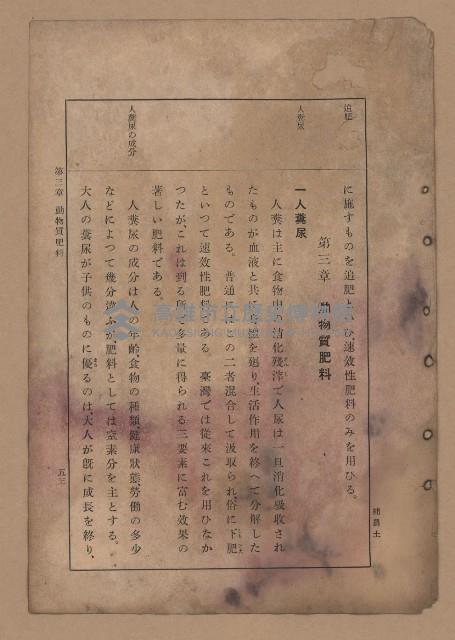 追肥
に施すものを追肥と云ひ速效性肥料のみを用ひる。
第三章 動物質肥料
人糞尿
一人糞尿
人糞は主に食物中の消化殘滓で人尿は一旦消化吸收され
たものが血液と共に身體を廻り、生活作用を終へて分解した
ものである。普通にはこの二者混合して汲取られ俗に下肥
といつて速效性肥料である。臺灣では從來これを用ひなか
つたが、これは到る所に多量に得られる三要素に富む效果の
著しい肥料である。
人糞尿の成分
人糞尿の成分は人の年齡食物の種類、健康狀態勞働の多少
などによつて幾分違ふが肥料としては窒素分を主とする。
大人の糞尿が子供のものに優るのは大人が既に成長を終り、
第三章 動物質肥料
五三
高雄市立歷史博物館
KAOHSIUNG MUSEUM OF HISTORY